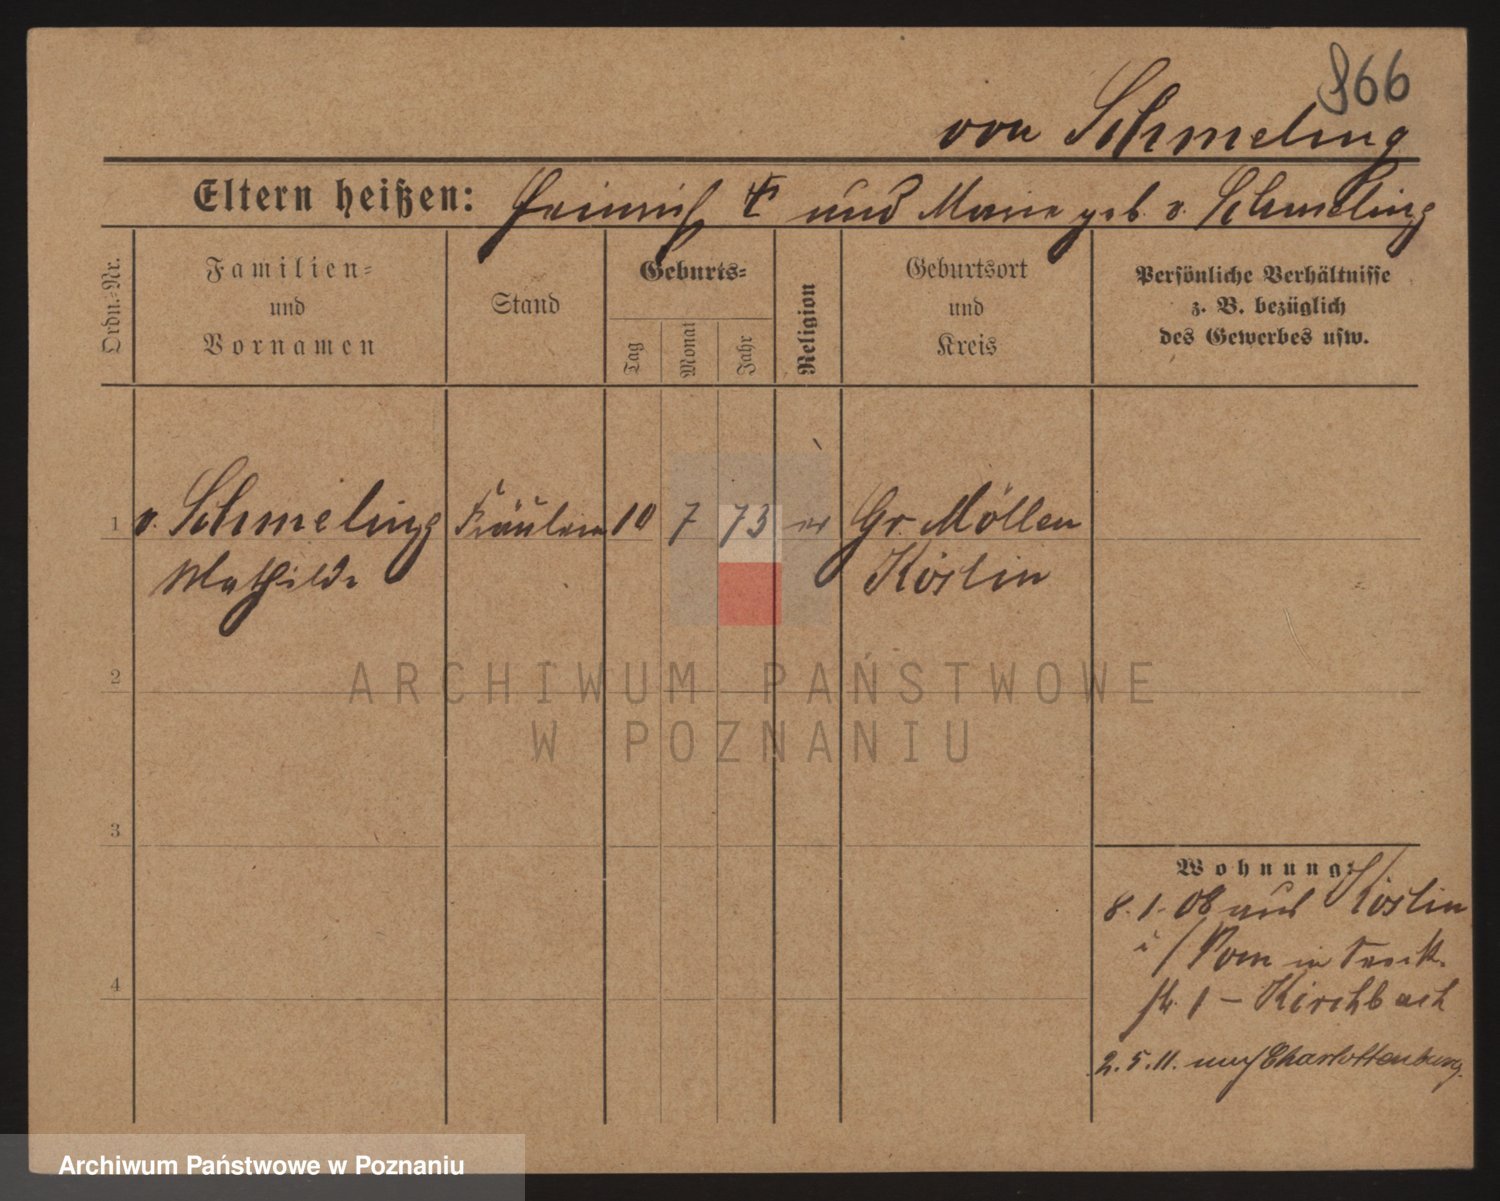 866
von Schmeling
Eltern heißen: Heinrich und Marie geb. v. Schmeling
Ordn.-Nr.
Familien-
und
Vornamen
Stand
Geburts-
Tag
Monat
Jahr
Religion
Geburtsort
und
Kreis
Persönliche Verhältnisse
z. B. bezüglich
des Gewerbes usw.
1 v. Schmeling Fräulein 10 7 73 ev Gr. Möllen
Mathilde Köslin
2
ARCHIWUM PAŃSTWOWE
W POZNANIU
3
Wohnung:
8.1.08 aus Köslin
i/Pom in
str. 1 – Kirchbach
4
2.5.11. nach Charlottenburg.
Archiwum Państwowe w Poznaniu